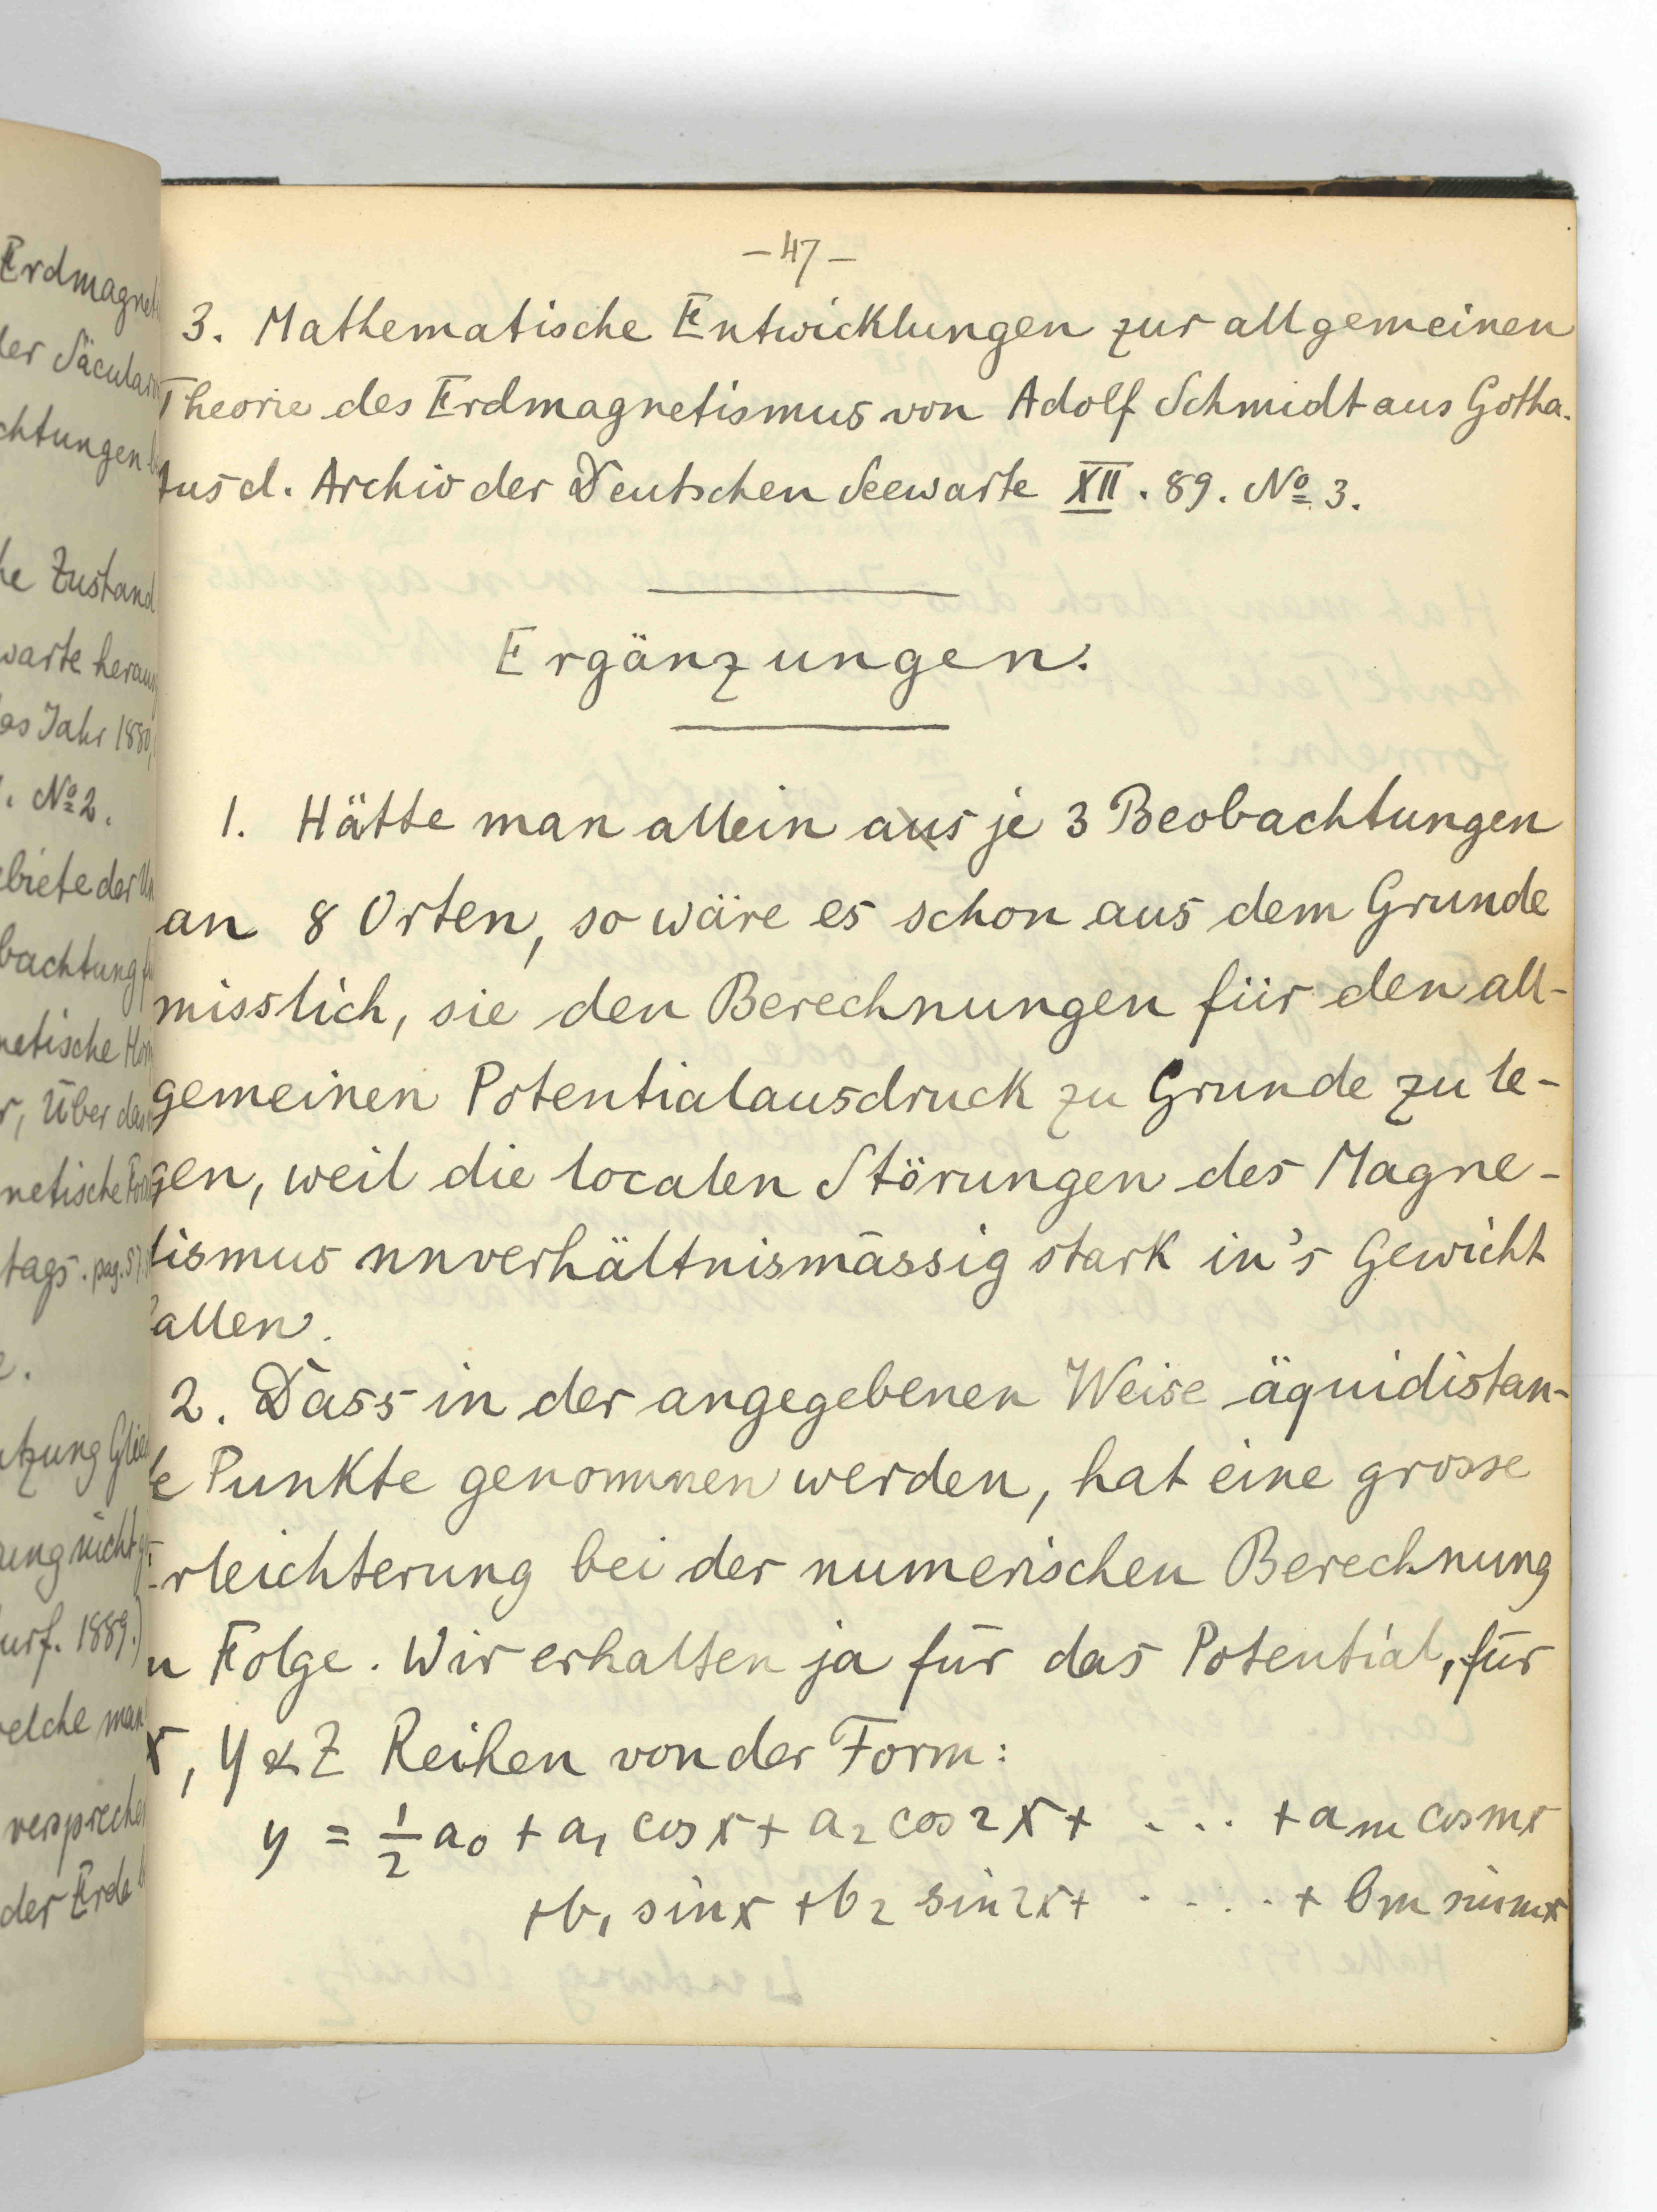 - 47 -
3. Mathematische Entwicklungen zur allgemeinen
Theorie des Erdmagnetismus von Adolf Schmidt aus Gotha.
Aus d. Archiv der Deutschen Seewarte XII. 89. No 3.
Ergänzungen.
1. Hätte man allein aus je 3 Beobachtungen
an 8 Orten, so wäre es schon aus dem Grunde
misslich, sie den Berechnungen für den all-
gemeinen Potentialausdruck zu Grunde zu le-
gen, weil die localen Störungen des Magne-
tismus unverhältnismässig stark in's Gewicht
fallen.
2. Dass in der angegebenen Weise äquidistan-
te Punkte genommen werden, hat eine grosse
Erleichterung bei der numerischen Berechnung
zu Folge. Wir erhalten ja für das Potential, für
X, Y & Z Reihen von der Form:
y = 1/2 a0 + a1 cos x + a2 cos 2x + . . . . + am cos mx
+ b1 sin x + b2 sin 2x + . . . . . + bm sin mx
Erdmagnet
der Säcular
chtungen
he Zustand
warte heraus
as Jahr 1880,
. No 2.
ebiete der Un
bachtung
netische Hor
r, Über den
netische
tags. pag. 57.
e.
tzung Glie
ung nicht
urf. 1889.)
welche man
versprechen
der Erde